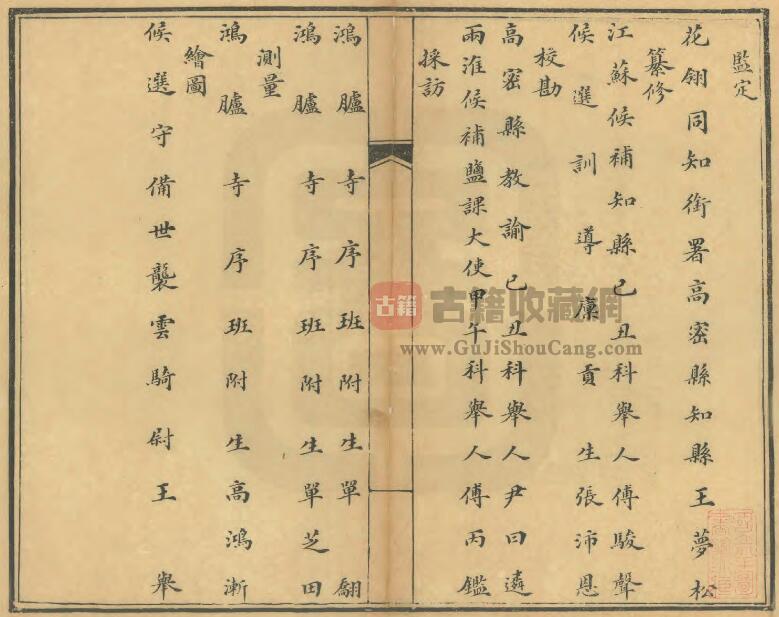 監定
花翎同知銜署高密縣知縣王夢松
纂修
江蘇候補知縣己丑科舉人傅駿聲
候選訓導廩貢生張沛恩
校勘
高密縣教諭己丑科舉人尹曰遴
兩淮候補鹽課大使甲午科舉人傅丙鑑
採訪
鴻臚寺序班附生單翩
鴻臚寺序班附生單芝田
測量
鴻臚寺序班附生高鴻漸
繪圖
候選守備世襲雲騎尉王舉
古籍
古籍收藏網
www.GuJiShouCang.com